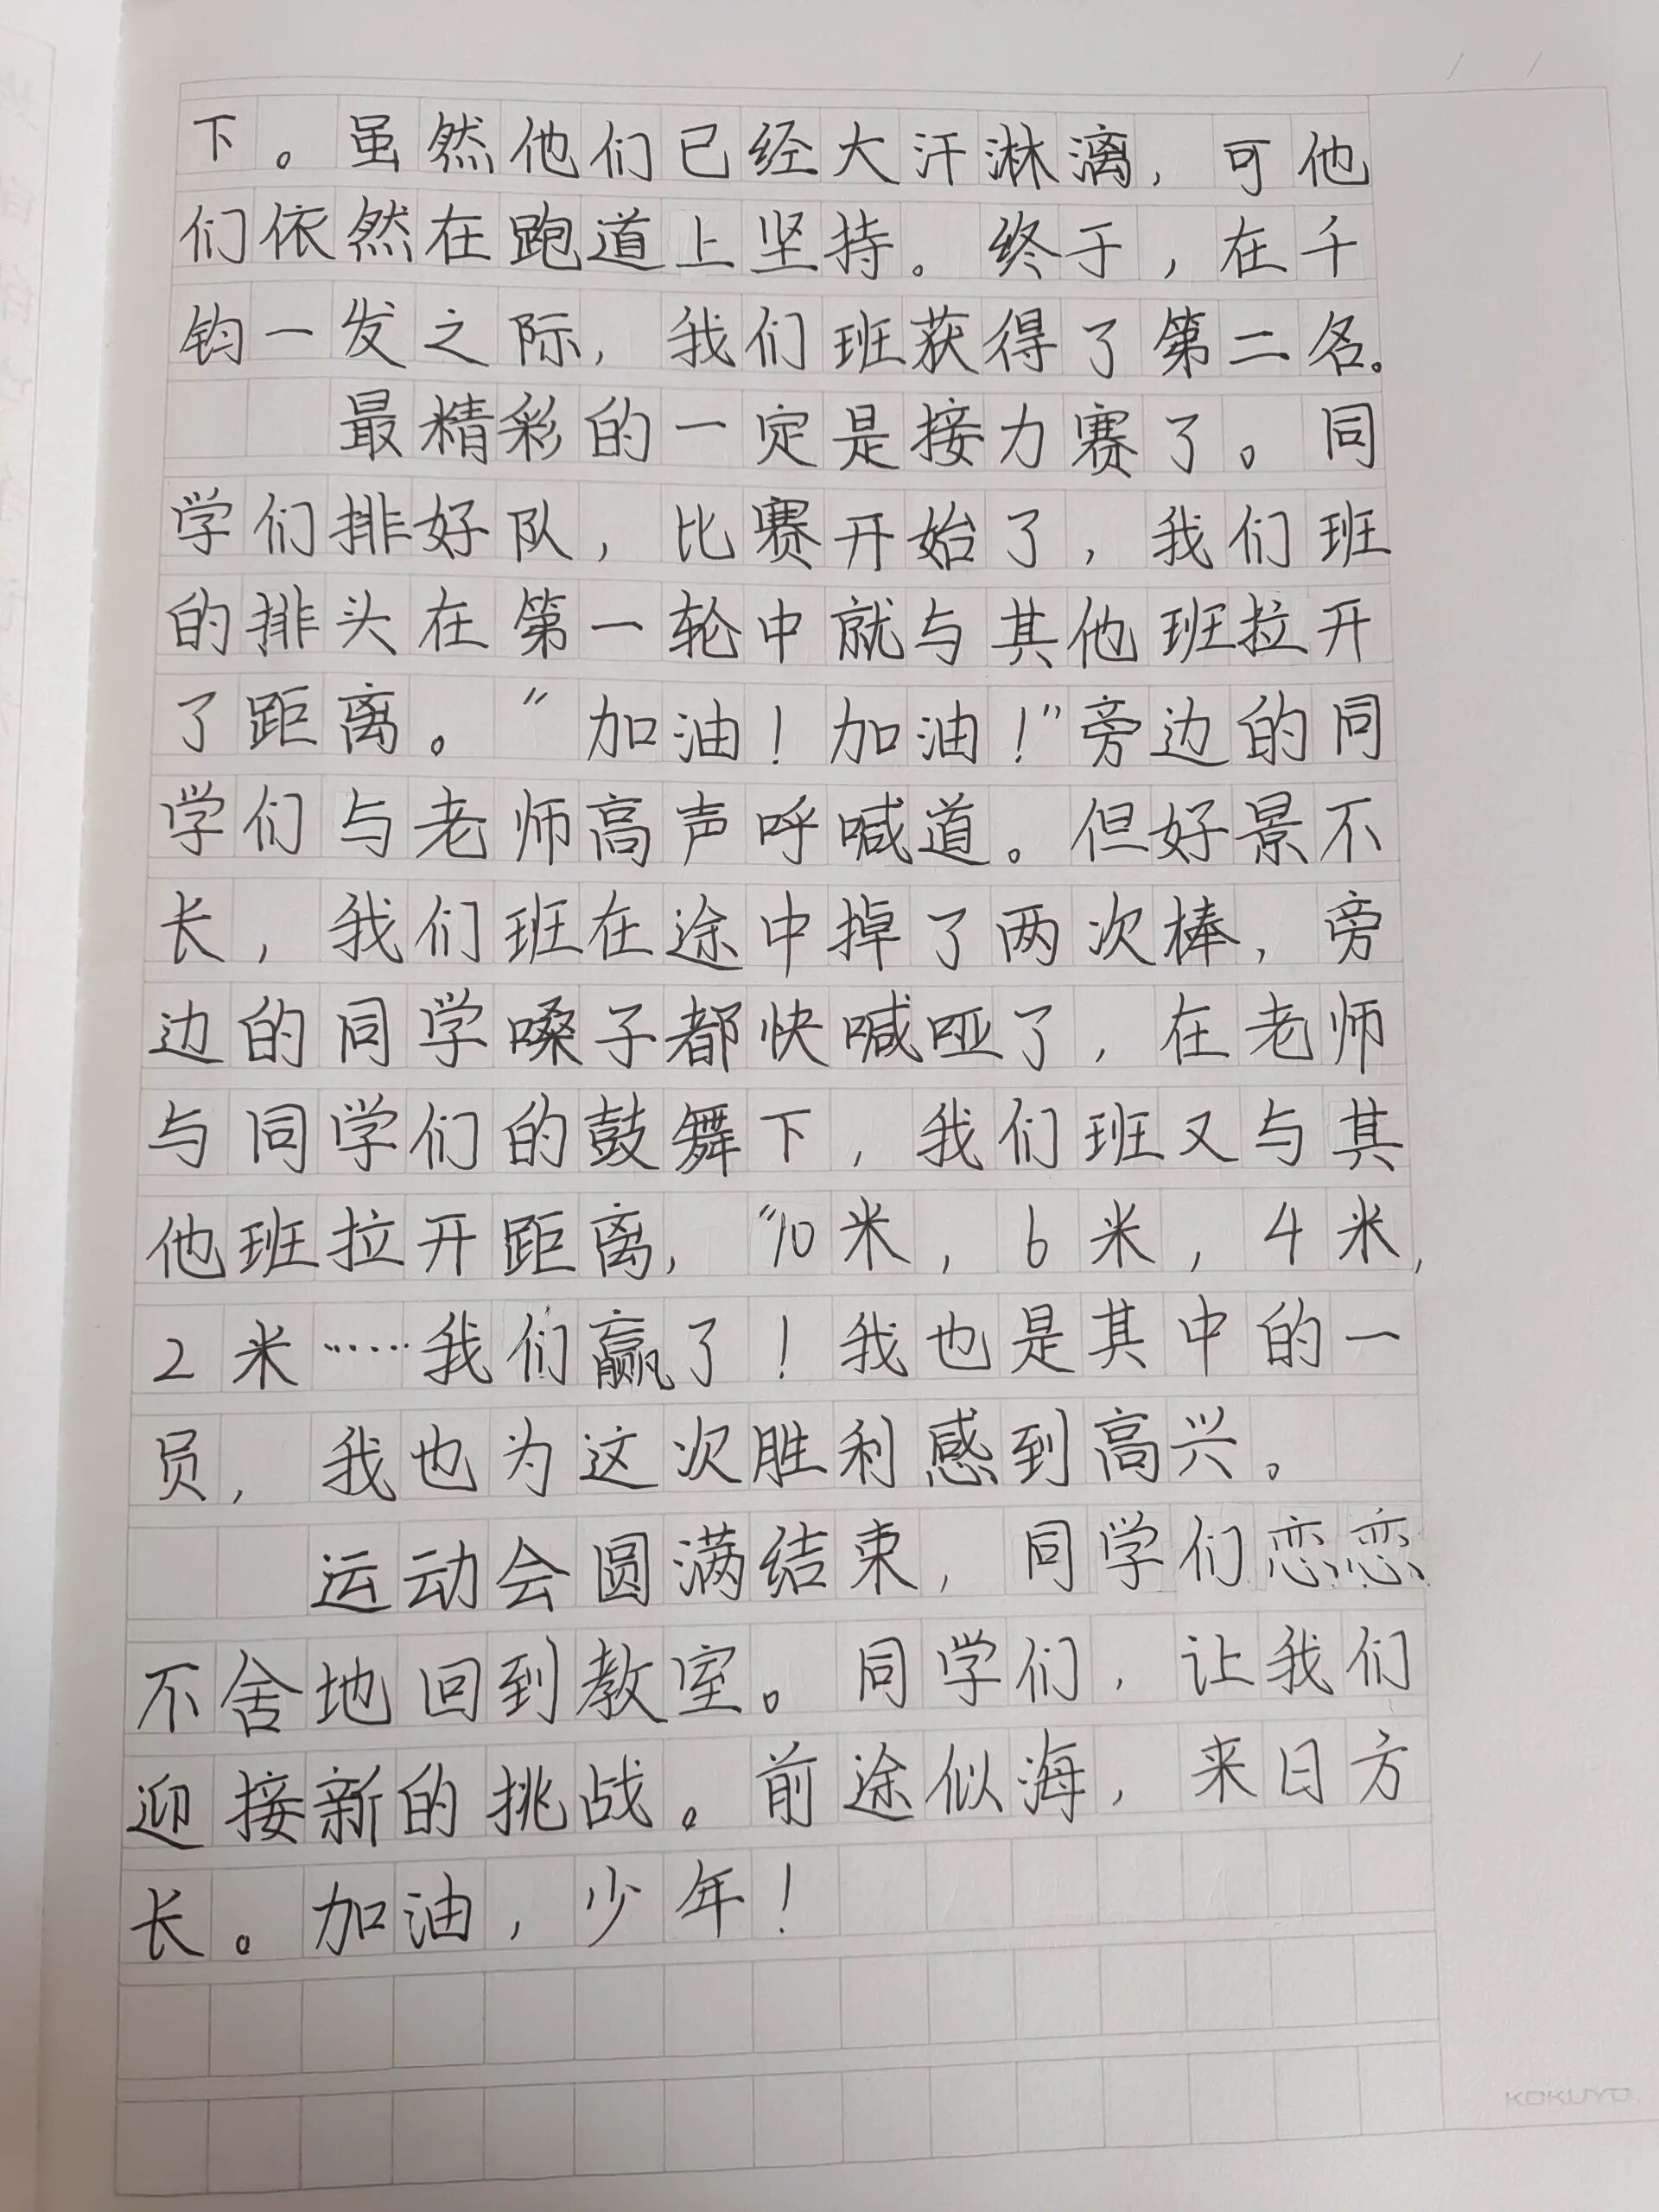 下。虽然他们已经大汗淋漓，可他
们依然在跑道上坚持。终于，在千
钧一发之际，我们班获得了第二名。
最精彩的一定是接力赛了。同
学们排好队，比赛开始了，我们班
的排头在第一轮中就与其他班拉开
了距离。“加油！加油！”旁边的同
学们与老师高声呼喊道。但好景不
长，我们班在途中掉了两次棒，旁
边的同学嗓子都快喊哑了，在老师
与同学们的鼓舞下，我们班又与其
他班拉开距离，“10米，6米，4米，
2米……我们赢了！我也是其中的一
员，我也为这次胜利感到高兴。
运动会圆满结束，同学们恋恋
不舍地回到教室。同学们，让我们
迎接新的挑战。前途似海，来日方
长。加油，少年！
KOKUYO